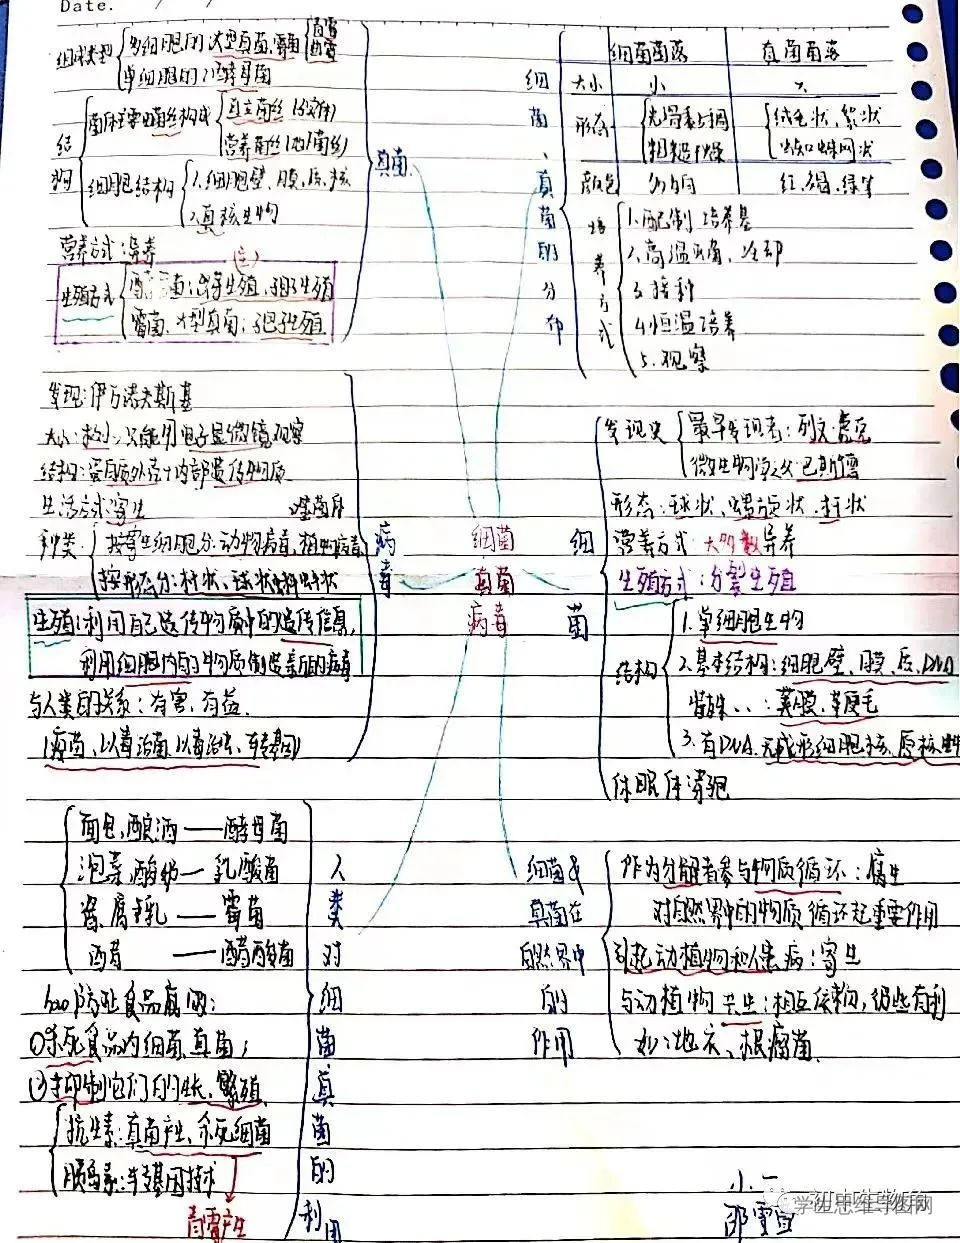 Date.
组成类型 多细胞的：大型真菌、霉菌 青霉 曲霉
单细胞的：酵母菌
结构 菌体主要由菌丝构成 直立菌丝
营养菌丝
细胞结构 1.细胞壁、膜、质、核
2.真核生物
营养方式：异养
生殖方式 酵母菌：出芽生殖、孢子生殖
霉菌、大型真菌：孢子生殖
真菌
细菌、真菌的分布
细菌菌落 真菌菌落
大小 小 大
形态 光滑黏稠 绒毛状、絮状
粗糙干燥 蜘蛛网状
颜色 多为白 红、褐、绿等
培养方式
1.配制培养基
2.高温灭菌、冷却
3.接种
4.恒温培养
5.观察
发现：伊万诺夫斯基
大小：极小、只能用电子显微镜观察
结构：蛋白质外壳+内部遗传物质
生活方式：寄生 噬菌体
种类 按寄生细胞分：动物病毒、植物病毒
按形态分：杆状、球状、蝌蚪状
生殖：利用自己遗传物质中的遗传信息，
利用细胞内的物质制造新的病毒
与人类的关系：有害、有益.
(疫苗、以毒治菌、以毒治虫、转基因)
病毒
细菌
真菌
病毒
细菌
发现史 最早发现者：列文·虎克
微生物学之父：巴斯德
形态：球状、螺旋状、杆状
营养方式：大多数异养
生殖方式：分裂生殖
结构 1.单细胞生物
2.基本结构：细胞壁、膜、质、DNA
特殊、、：荚膜、鞭毛
3.有DNA、无成形细胞核、原核生物
休眠体：芽孢
面包、酿酒——酵母菌
泡菜、酸奶——乳酸菌
酱、腐乳——霉菌
酒、醋——醋酸菌
防止食品腐败：
①杀死食品内细菌、真菌；
②抑制它们的生长、繁殖
抗生素：真菌产生、杀死细菌
胰岛素：转基因技术
青霉产生
人类对细菌真菌的利用
细菌&真菌在自然界中的作用
作为分解者参与物质循环：腐生
对自然界中的物质循环起重要作用
引起动植物和人患病：寄生
与动植物共生：相互依赖，彼此有利
如：地衣、根瘤菌
小一
邵雪宜
初中生物酷
学生思维导图网